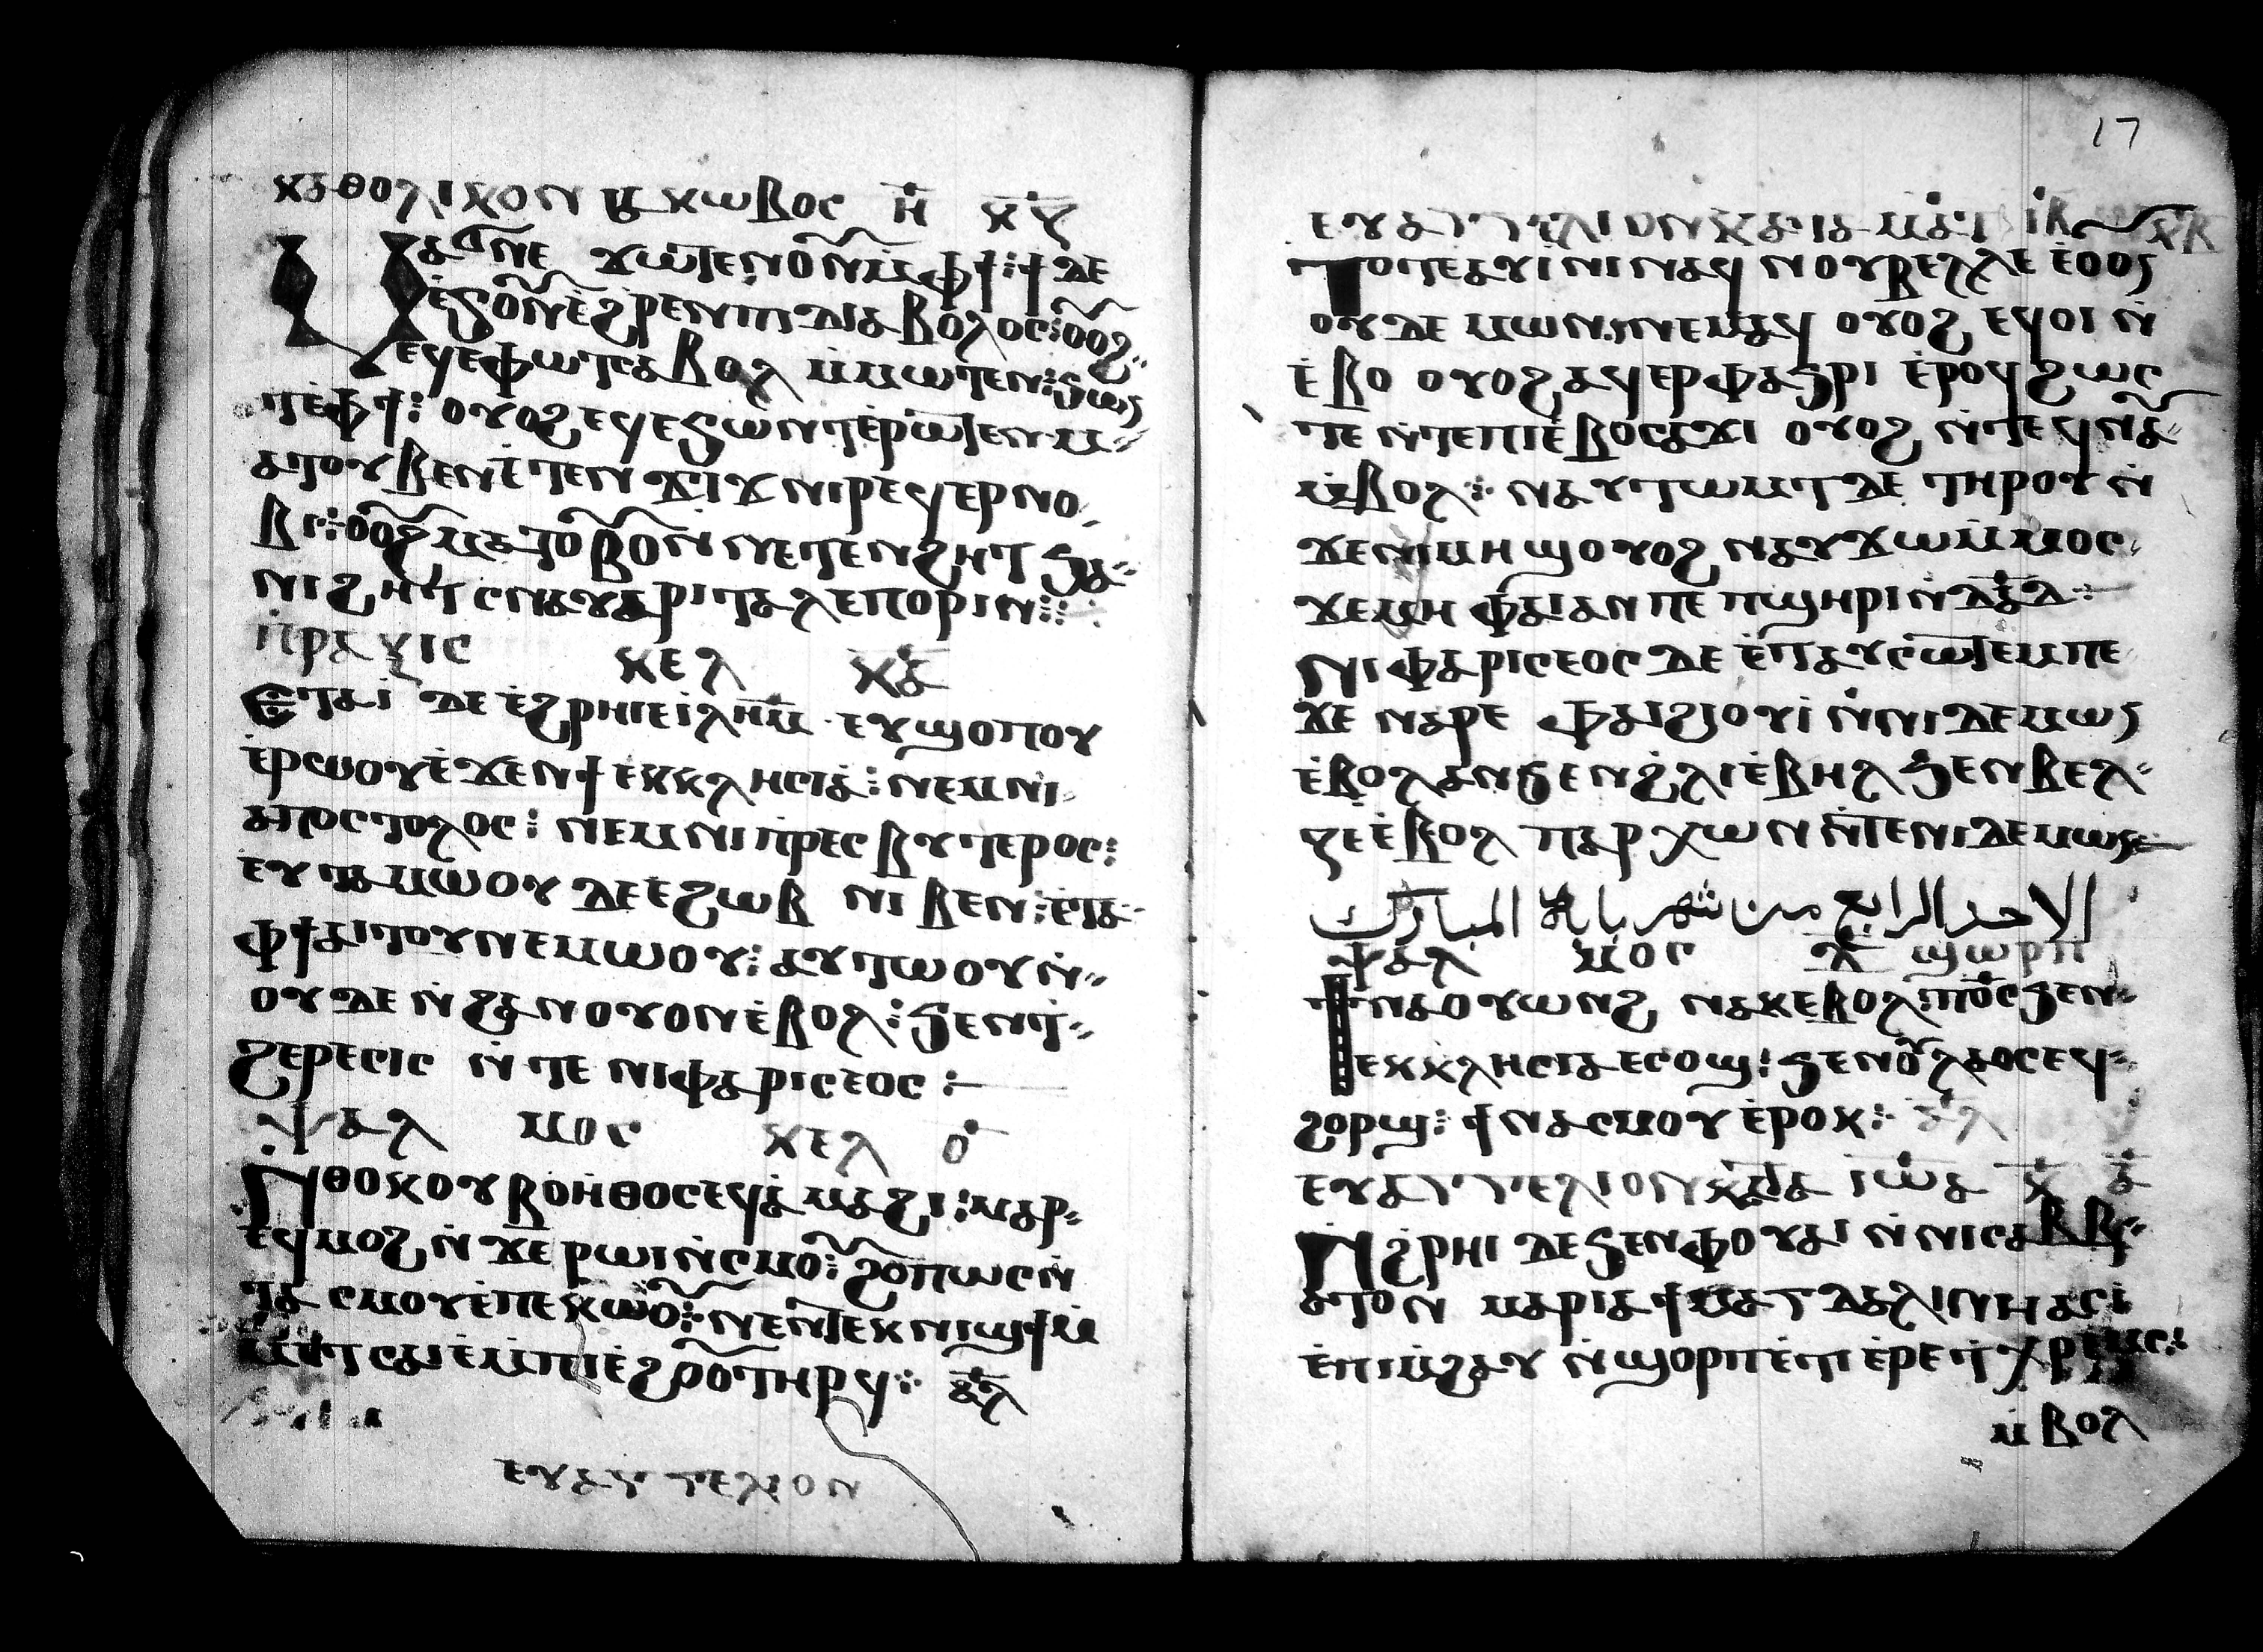 ⲕⲁⲑⲟⲗⲓⲕⲟⲛ ⲓⲁⲕⲱⲃⲟⲥ ⲏ̅ ⲕ̅ⲍ̅
ⲙⲁϭⲛⲉ ϫⲱⲧⲉⲛ ⲟⲩⲛ ⲙⲫϯ⳾ ϯ ⲇⲉ
ⲉϧⲟⲩⲛ ⲉϩⲣⲉⲛ ⲡⲓⲇⲓⲁⲃⲟⲗⲟⲥ⳾ ⲟⲩⲟϩ
ⲉϥⲉⲫⲱⲧ ⲥⲁⲃⲟⲗ ⲙⲙⲱⲧⲉⲛ⳾ ϧⲱⲛ
ⲧⲉⲫϯ⳾ ⲟⲩⲟϩ ⲉϥⲉϧⲱⲛⲧ ⲉⲣⲱⲧⲉⲛ ⲙ
ⲁⲧⲟⲩⲃⲉ ⲛⲉⲧⲉⲛϫⲓϫ ⲛⲓⲣⲉϥⲉⲣⲛⲟ
ⲃⲓ⳾ ⲟⲩⲟϩ ⲙⲁⲧⲟⲩⲃⲟⲛ ⲛⲉⲧⲉⲛϩⲏⲧ ϧⲁ
ⲛⲓϩⲏⲧ ⲥⲛⲁⲩ ⲁⲣⲓⲧⲁⲗⲉⲡⲟⲣⲓⲛ⳾
ⲡⲣⲁⲝⲓⲥ ⲕⲉⲗ ⲕ̅ⲁ̅
ⲉⲧⲁⲓ ⲇⲉ ⲉϩⲣⲏⲓ ⲉⲓⲗⲏⲙ ⲉⲩϣⲟⲡⲟⲩ
ⲉⲣⲱⲟⲩ ⲉϫⲉⲛ ϯⲉⲕⲕⲗⲏⲥⲓⲁ⳾ ⲛⲉⲙ ⲛⲓ
ⲁⲡⲟⲥⲧⲟⲗⲟⲥ⳾ ⲛⲉⲙ ⲛⲓⲡⲣⲉⲥⲃⲩⲧⲉⲣⲟⲥ⳾
ⲉⲩⲧⲁⲙⲱⲟⲩ ⲇⲉ ⲉϩⲱⲃ ⲛⲓⲃⲉⲛ⳾ ⲉⲧⲁ
ⲫϯ ⲁⲓⲧⲟⲩ ⲛⲉⲙⲱⲟⲩ⳾ ⲁⲩⲧⲱⲟⲩⲛ
ⲟⲩ ⲇⲉ ⲛϩⲁⲛⲟⲩⲟⲛ ⲉⲃⲟⲗ⳾ ϧⲉⲛ ϯ
ϩⲉⲣⲉⲥⲓⲥ ⲛⲧⲉ ⲛⲓⲫⲁⲣⲓⲥⲉⲟⲥ⳾
ⲯⲁⲗ ⲙⲟⲥ ⲕⲉⲗ ⲟ̅
ⲛⲑⲟⲕ ⲟⲩⲃⲟⲏⲑⲟⲥ ⲉϥⲁⲙⲁϩⲓ⳾ ⲙⲁⲣ
ⲉϥⲙⲟϩ ⲛϫⲉ ⲣⲱⲓ ⲛⲥⲙⲟⲩ⳾ ϩⲟⲡⲱⲥ ⲛ
ⲧⲁ ⲥⲙⲟⲩ ⲉⲡⲉⲕⲱⲟⲩ⳾ ⲛⲉⲙ ⲧⲉⲕⲛⲓϣϯ ⲙ
ⲙⲉⲧⲥⲁⲓⲉ ⲙⲡⲓⲉϩⲟⲟⲩ ⲧⲏⲣϥ⳾ ⲁ̅ⲗ̅
ⲉⲩⲁⲅⲅⲉⲗⲓⲟⲛ
17
ⲉⲩⲁⲅⲅⲉⲗⲓⲟⲛ ⲕⲁⲧⲁ ⲙⲁⲧ ⲓ̅ⲃ̅ ⲕ̅ⲃ̅
ⲧⲟⲧⲉ ⲁⲩⲓⲛⲓ ⲛⲁϥ ⲛⲟⲩⲃⲉⲗⲗⲉ ⲉⲟⲟⲛ
ⲟⲩⲇⲉⲙⲱⲛ ⲛⲉⲙⲁϥ ⲟⲩⲟϩ ⲉϥⲟⲓ ⲛ
ⲉⲃⲟ ⲟⲩⲟϩ ⲁϥⲉⲣⲫⲁϧⲣⲓ ⲉⲣⲟϥ ϩⲱⲥ
ⲧⲉ ⲛⲧⲉ ⲡⲓⲉⲃⲟ ⲥⲁϫⲓ ⲟⲩⲟϩ ⲛⲧⲉϥⲛⲁⲩ
ⲙⲃⲟⲗ⳾ ⲛⲁⲩⲧⲱⲙⲧ ⲇⲉ ⲧⲏⲣⲟⲩ ⲛ
ϫⲉ ⲛⲓⲙⲏϣ ⲟⲩⲟϩ ⲛⲁⲩϫⲱ ⲙⲙⲟⲥ
ϫⲉ ⲙⲏ ⲫⲁⲓ ⲁⲛ ⲡⲉ ⲡϣⲏⲣⲓ ⲛⲇⲁⲇ
ⲛⲓⲫⲁⲣⲓⲥⲉⲟⲥ ⲇⲉ ⲉⲧⲁⲩⲥⲱⲧⲉⲙ ⲡⲉ
ϫⲉ ⲛⲁⲣⲉ ⲫⲁⲓ ϩⲓⲟⲩⲓ ⲛⲛⲓⲇⲉⲙⲱⲛ
ⲉⲃⲟⲗ ⲁⲛ ϧⲉⲛ ϩⲗⲓ ⲉⲃⲏⲗ ϧⲉⲛ ⲃⲉⲗ
ⲍⲉⲉⲃⲟⲗ ⲡⲁⲣⲭⲱⲛ ⲛⲧⲉ ⲛⲓⲇⲉⲙⲱⲛ
الاحد الرابع من شهر بابه المبارك
ⲯⲁⲗ ⲙⲟⲥ ⲗ̅ ϣⲱⲣⲡ
ϯⲛⲁⲟⲩⲱⲛϩ ⲛⲁⲕ ⲉⲃⲟⲗ ⲡⲟ̅ⲥ̅ ϧⲉⲛ
ⲉⲕⲕⲗⲏⲥⲓⲁ ⲉⲥⲟϣ⳾ ϧⲉⲛ ⲟⲩⲗⲁⲟⲥ ⲉϥ
ϩⲟⲣϣ⳾ ϯⲛⲁⲥⲙⲟⲩ ⲉⲣⲟⲕ⳾ ⲁ̅ⲗ̅
ⲉⲩⲁⲅⲅⲉⲗⲓⲟⲛ ⲕⲁⲧⲁ ⲓⲱⲁ ⲕ̅ ⲁ̅
ⲛϩⲣⲏⲓ ⲇⲉ ϧⲉⲛ ⲫⲟⲩⲁⲓ ⲛⲛⲓⲥⲁⲃⲃ
ⲁⲧⲟⲛ ⲙⲁⲣⲓⲁ ϯⲙⲁⲅⲇⲁⲗⲓⲛⲏ ⲁⲥⲓ
ⲉⲡⲓⲙϩⲁⲩ ⲛϣⲟⲣⲡ ⲉⲧⲓ ⲉⲣⲉ ⲡⲭⲣⲉⲙⲥ⳾
ⲙⲃⲟⲗ